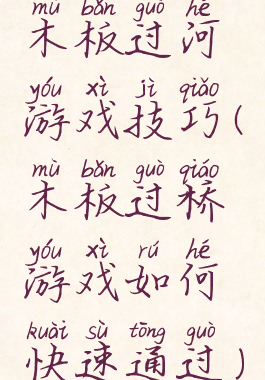 mù bǎn guò hé
木板过河
yóu xì jì qiǎo
游戏技巧(
mù bǎn guò qiáo
木板过桥
yóu xì rú hé
游戏如何
kuài sù tōng guò
快速通过)